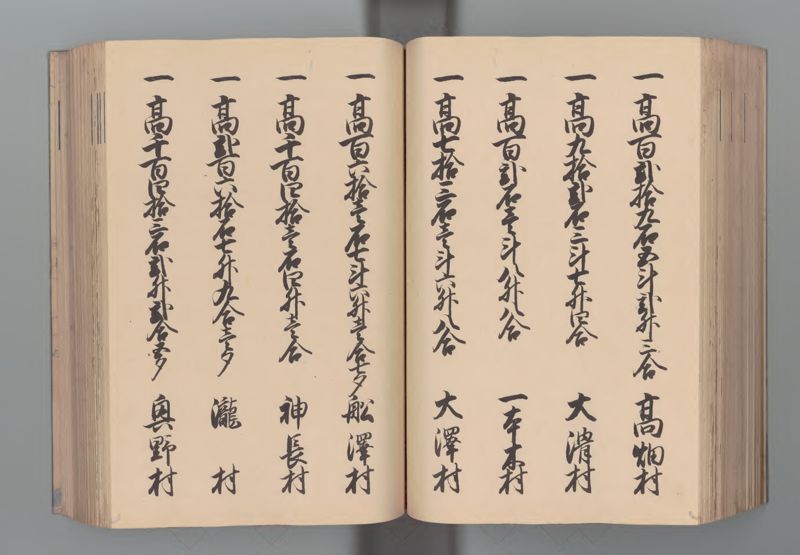 一高百弐拾九石五斗弐升三合 高畑村
一高九拾弐石三斗七升四合 大溝村
一高百弐石壱斗八升八合 一本木村
一高七拾三石壱斗六升八合 大澤村
一高百六拾壱石七斗八升壱合七夕 舩澤村
一高千百四拾壱石四升壱合 神長村
一高弐百六拾石七升九合三夕 瀧村
一高千百四拾三石弐升弐合五夕 奥野村